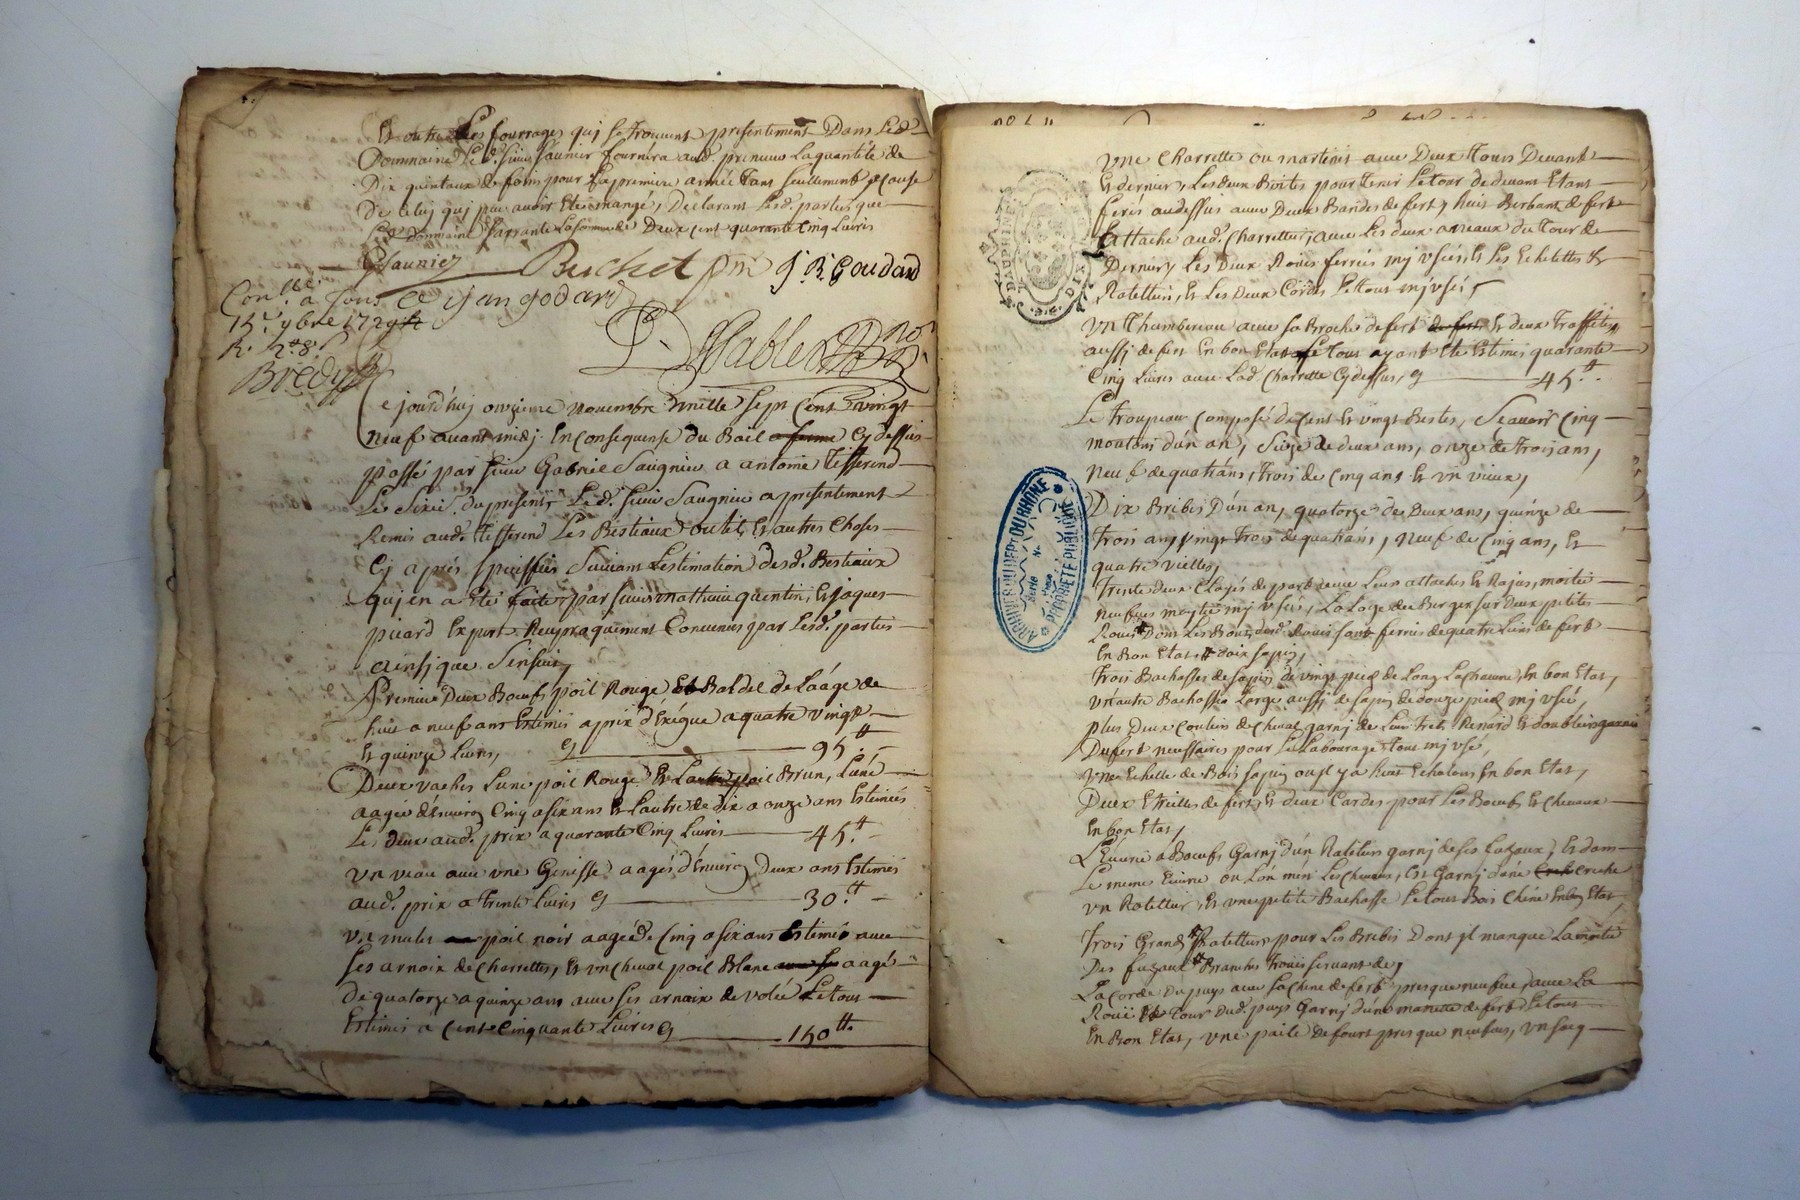 Et outre Les fourrages quj se trouvent presentement Dans Led.
Dommaine Led. sieur Saunier fournira aud. preneur La quantité de
Dix quintaux de foin pour La premiere année tant seullement a cause
De celuj quj peu avoir été mangé, Declarant Lesd. parties que
Led. Dommaine La somme de Deux Cent quarante Cinq Livres
GSaunier Buchet pnt J. R. Goudard
Con.lé a
15.e 9bre 1729
R.
Bredy
ce jourd'huj onzieme novembre mille sept Cent vingt
neuf avant midj En consequense du Bail a ferme Cydessus
passé par sieur Gabriel Saugnier a antoine Tisserend
Led. sieur Saugnier a presentement
Remis aud. Tisserend Les Bestiaux outils Et autres Choses
Cj aprés speciffiés Suivant Lestimation desd. Bestiaux
quj en a Eté faite par sieurs mathieu quentin, Et jaques
piard Expert Reciproquement Convenus par Lesd. parties
ainsj que Sensuit
Premier Deux Boeufs poil Rouge Et de Laáge de
huit a neuf ans Estimés a prix d'Exégue a quatre vingt
Et quinze Livres, Cj 95.tt
Deux vaches Lune poil Rouge Et Lautre poil Brun, Lune
aagée denviron Cinq a six ans Et Lautre de dix a onze ans Estimées
Les deux aud. prix a quarante Cinq Livres 45.tt
un veau avec une Genisse aagés d'Environ Deux ans Estimés
aud. prix a trente Livres Cj 30.tt
un mulet poil noir aagé de Cinq a six ans Estimé avec
ses arnoix de Charrettes, Et un Cheval poil Blanc aagé
de quatorze a quinze ans avec ses arnoix de volée Le tout
Estimés a Cent Cinquante Livres Cj 150.tt
une Charrette ou martinet avec Deux tours Devant
Et dernier, Les deux Boites pour tenir Le tour de devant Etant
ferés audessus avec Deux Bandes de fert, huit de fert
attaché aud. Charrettes, avec Les deux anneaux du tour de
Dernier, Les Deux Roues ferrées mj usées Et Les Echelettes &
Ratelliers, Et Les Deux Cordes Le tout mj usé,
un Thombereau avec sa Broche de fert de fert Et deux
aussj de fert En bon Etat Le tout ayant Eté Estimés quarante
Cinq Livres avec Lad. Charrette Cydessus, Cj 45.tt
Le troupeau Composé de Cent Et vingt Bestes, Sçavoir Cinq
moutons d'un an, Seize de deux ans, onze de trois ans,
neuf de quatre ans, trois de Cinq ans Et un vieux,
Dix Brebis D'un an, quatorze de Deux ans, quinze de
trois ans, vingt trois de quatre ans, neuf de Cinq ans, Et
quatre vielles,
Trente deux Clayes de parc avec Leurs attaches Et, moitié
neufves moytié mj usés, La Loge du Berger sur Deux petites
Roues Dont Les sont ferrées de quatre Liens de fert
En Bon Etat Bois sapin,
Trois Bachasses de sapin de vingt pied de Long La chacune, En bon Etat,
un autre Bachasse Large aussj de sapin de douze pied mj usé,
plus Deux de Cheval garnj de Leur Renard Et
De fert neussaires pour Le Labourage tous mj usé,
une Echelle de Bois sapin ou jl y a huit Echelons En bon Etat,
Deux Etrilles de fert, Et deux Cardes pour Les Boeufs Et Chevaux
En bon Etat,
L'Ecurie a Boeufs Garnj d'un Ratellier garnj de ses fuzaux, Et dans
Le memes Ecurie ou L'on met Les Chevaux, Est Garnj d'une Creche
un Ratellier, Et une petite Bachasse Le tout Bois Chêne En bon Etat,
Trois Grands Ratelliers pour Les Brebis Dont jl manque La moitié
Des fuzaux Branches servant de,
La Corde du puys avec sa Chene de fert presque neufve, avec La
Roüe Et Tour Dud. puys Garnj d'une manette de fert Le tout
En Bon Etat, une paile De fourt presque neufve, un
DAUPHINE
ARCHIVES DU DEP.T DU RHONE
PROPRIETE PUBLIQUE